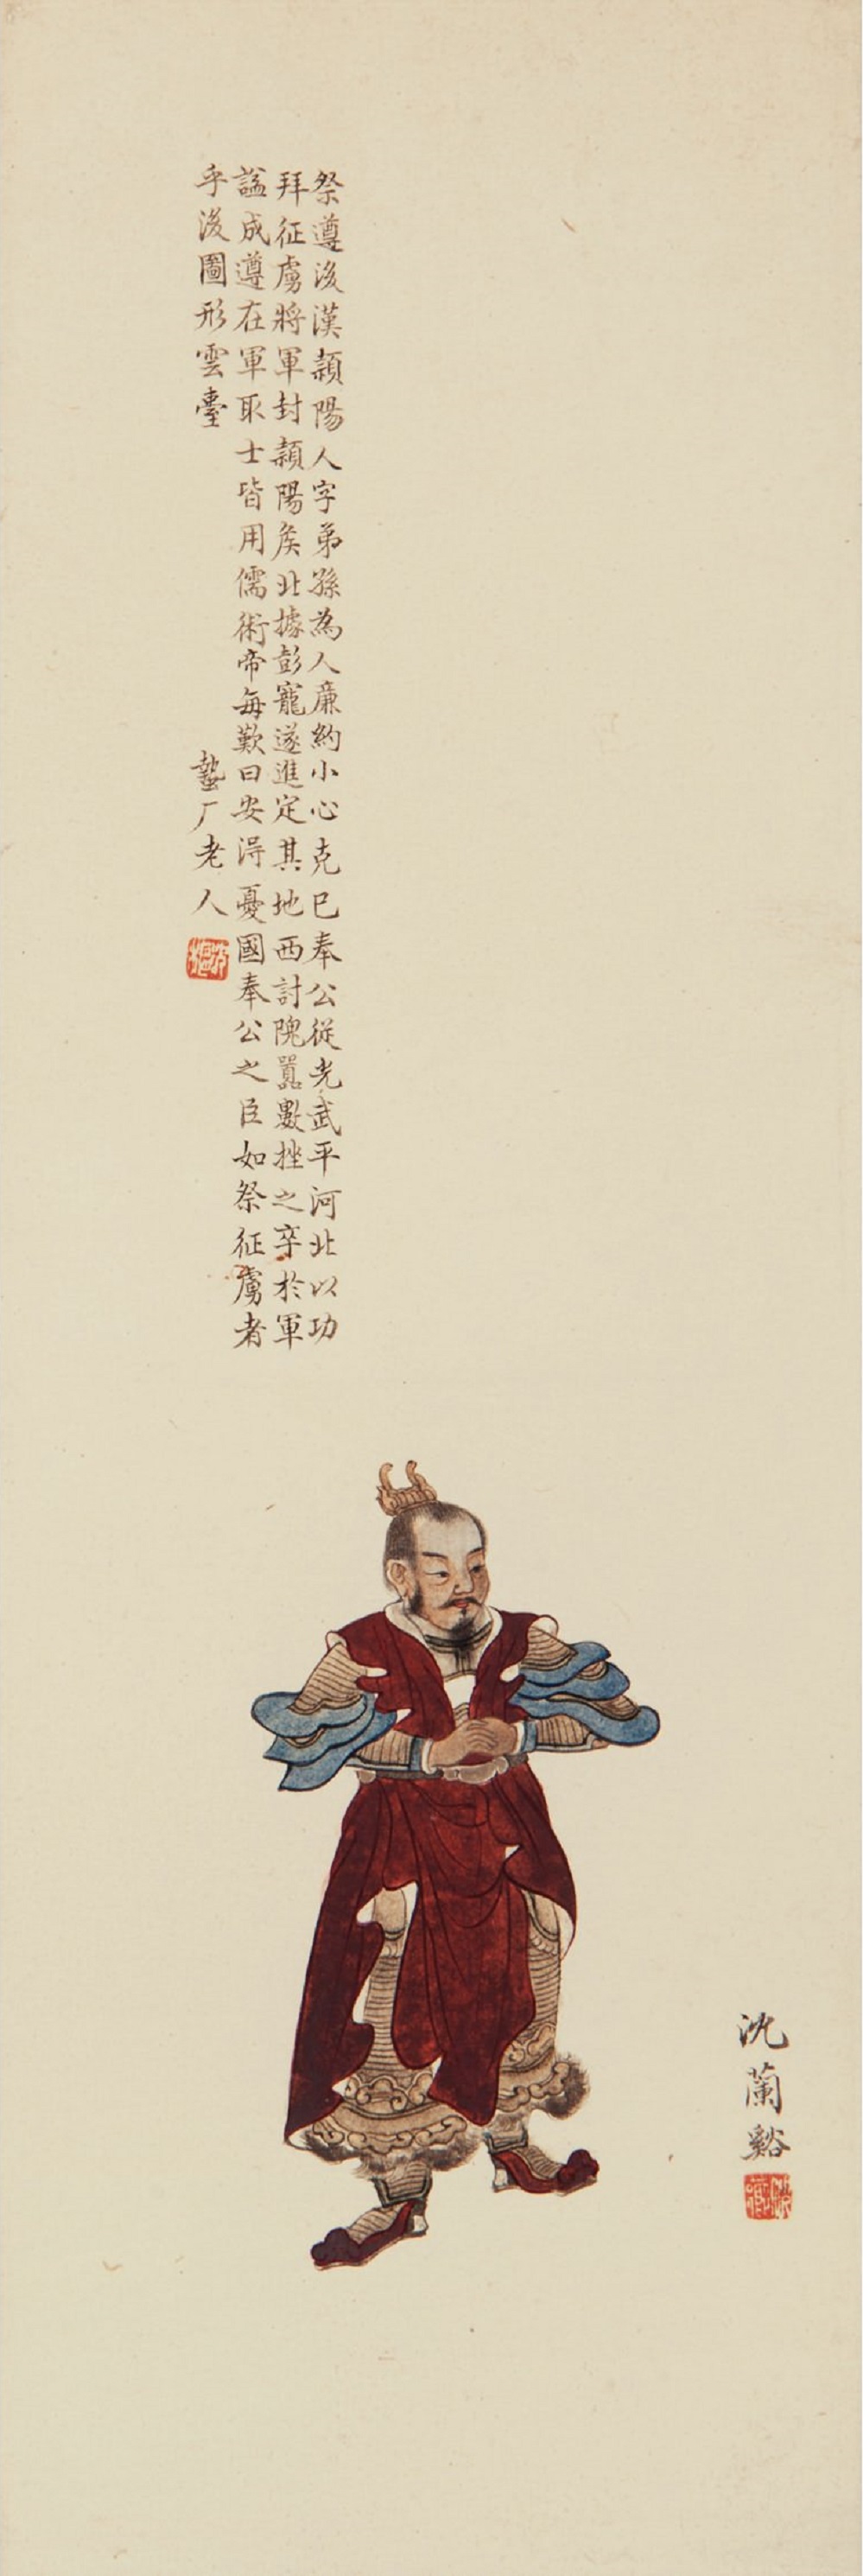 祭遵後漢潁陽人字弟孫為人廉約小心克己奉公從光武平河北以功
拜征虜將軍封潁陽矦北據彭寵遂進定其地西討隗囂數挫之卒於軍
諡成遵在軍取士皆用儒術帝每歎曰安淂憂國奉公之臣如祭征虜者
乎後圖形雲臺
蟄厂老人
沈蘭谿